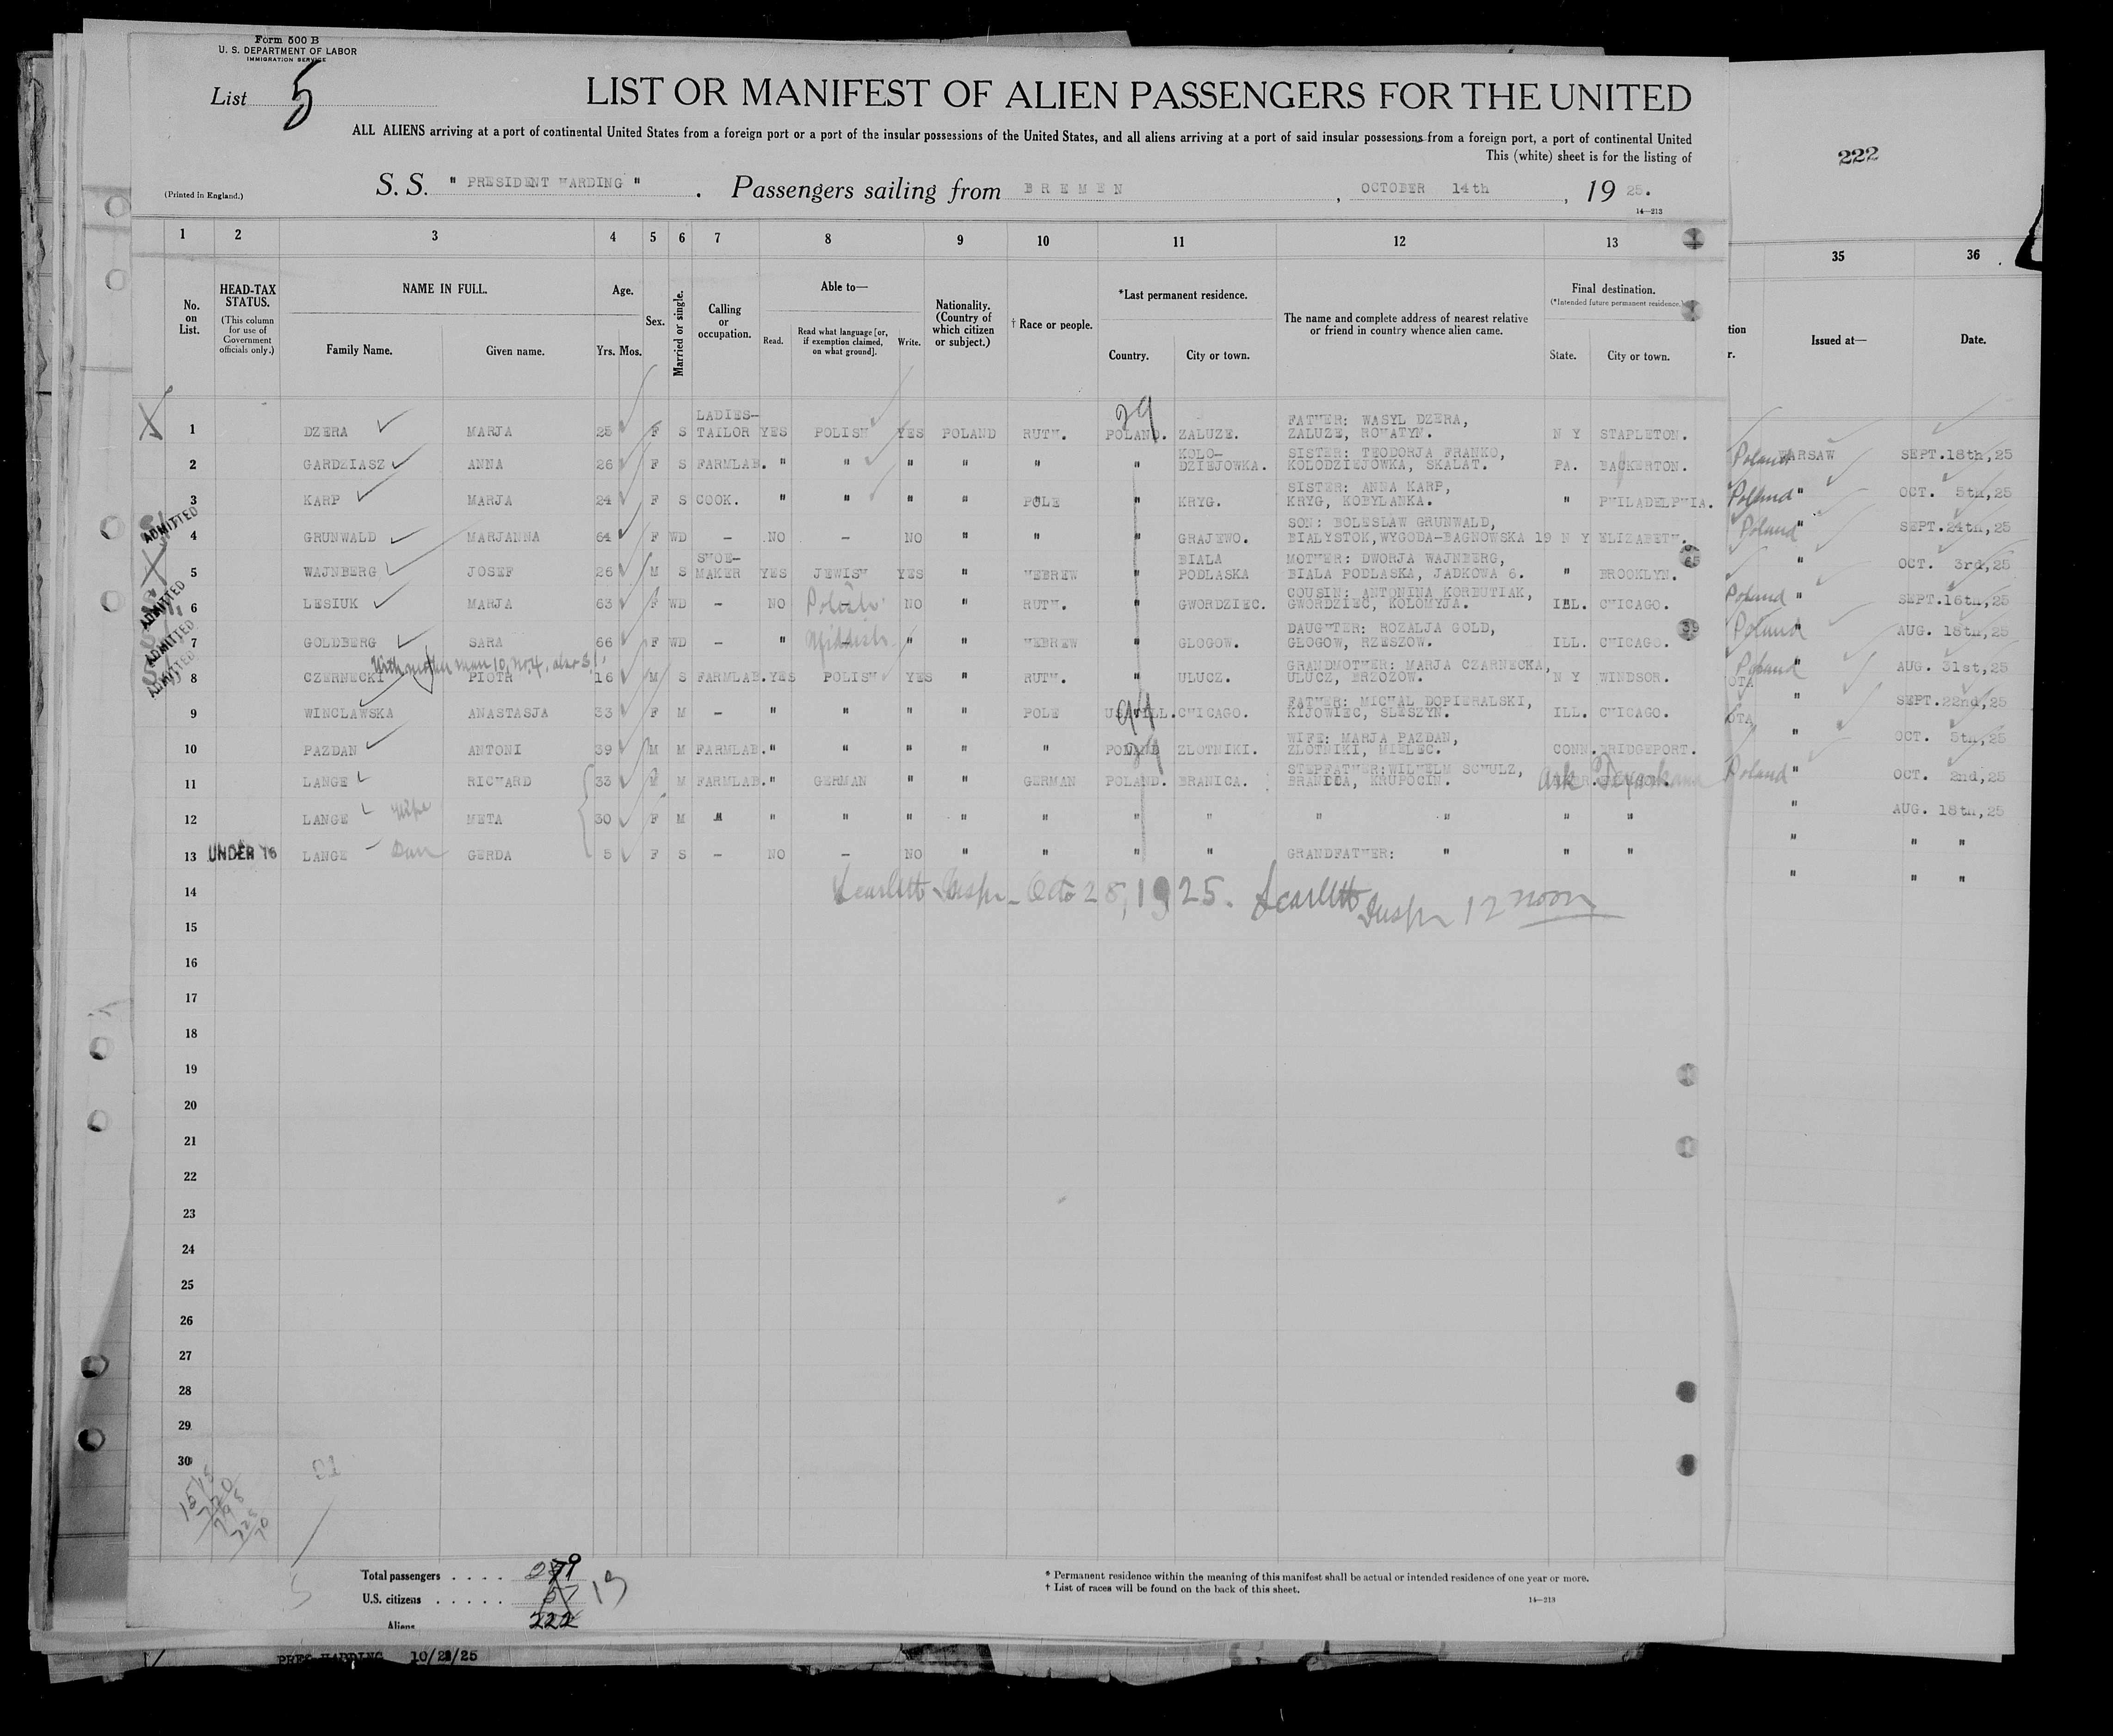 Form 500 B
U. S. DEPARTMENT OF LABOR
IMMIGRATION SERVICE
List 5
LIST OR MANIFEST OF ALIEN PASSENGERS FOR THE UNITED
ALL ALIENS arriving at a port of continental United States from a foreign port or a port of the insular possessions of the United States, and all aliens arriving at a port of said insular possessions from a foreign port, a port of continental United
This (white) sheet is for the listing of
222
(Printed in England.)
S. S. " PRESIDENT HARDING " . Passengers sailing from BREMEN , OCTOBER 14th , 19 25.
14—213
1 2 3 4 5 6 7 8 9 10 11 12 13 35 36
No. on List.
HEAD-TAX STATUS.
(This column for use of Government officials only.)
NAME IN FULL.
Family Name. Given name.
Age.
Yrs. Mos.
Sex.
Married or single.
Calling or occupation.
Able to—
Read. Read what language [or, if exemption claimed, on what ground]. Write.
Nationality. (Country of which citizen or subject.)
† Race or people.
*Last permanent residence.
Country. City or town.
The name and complete address of nearest relative or friend in country whence alien came.
Final destination.
(*Intended future permanent residence.)
State. City or town.
Issued at— Date.
29
1 DZERA MARJA 25 F S LADIES-TAILOR YES POLISH YES POLAND RUTH. POLAND. ZALUZE. FATHER: WASYL DZERA, ZALUZE, ROHATYN. N Y STAPLETON.
2 GARDZIASZ ANNA 26 F S FARMLAB. " " " " " " KOLO-DZIEJOWKA. SISTER: TEODORJA FRANKO, KOLODZIEJOWKA, SKALAT. PA. BACKERTON. Poland WARSAW SEPT.18th,25
3 KARP MARJA 24 F S COOK. " " " " POLE " KRYG. SISTER: ANNA KARP, KRYG, KOBYLANKA. " PHILADELPHIA. Poland " OCT. 5th,25
ADMITTED
4 GRUNWALD MARJANNA 64 F WD - NO - NO " " " GRAJEWO. SON: BOLESLAW GRUNWALD, BIALYSTOK,WYGODA-BAGNOWSKA 19 N Y ELIZABETH. Poland " SEPT.24th,25
5 WAJNBERG JOSEF 26 M S SHOE-MAKER YES JEWISH YES " HEBREW " BIALA PODLASKA MOTHER: DWORJA WAJNBERG, BIALA PODLASKA, JADKOWA 6. " BROOKLYN. " OCT. 3rd,25
ADMITTED
6 LESIUK MARJA 63 F WD - NO Polish NO " RUTH. " GWORDZIEC. COUSIN: ANTONINA KORBUTIAK, GWORDZIEC, KOLOMYJA. ILL. CHICAGO. Poland " SEPT.16th,25
ADMITTED
7 GOLDBERG SARA 66 F WD - " Yiddish " " HEBREW " GLOGOW. DAUGHTER: ROZALJA GOLD, GLOGOW, RZESZOW. ILL. CHICAGO. 39 Poland " AUG. 18th,25
ADMITTED
8 CZERNECKI PIOTR 16 M S FARMLAB. YES POLISH YES " RUTH. " ULUCZ. GRANDMOTHER: MARJA CZARNECKA, ULUCZ, BRZOZOW. N Y WINDSOR. Poland " AUG. 31st,25
9 WINCLAWSKA ANASTASJA 33 F M - " " " " POLE USA ILL. CHICAGO. FATHER: MICHAL DOPIERALSKI, KIJOWIEC, SLESZYN. ILL. CHICAGO. " SEPT.22nd,25
10 PAZDAN ANTONI 39 M M FARMLAB. " " " " " POLAND ZLOTNIKI. WIFE: MARJA PAZDAN, ZLOTNIKI, MIELEC. CONN. BRIDGEPORT. " OCT. 5th,25
11 LANGE RICHARD 33 M M FARMLAB. " GERMAN " " GERMAN POLAND. BRANICA. STEPFATHER:WILHELM SCHULZ, BRANICA, KRUPOCIN. Ark Texarkana Poland " OCT. 2nd,25
12 LANGE Wife META 30 F M " " " " " " " " " " " " " AUG. 18th,25
13 UNDER 16 LANGE Dau GERDA 5 F S - NO - NO " " " " GRANDFATHER: " " " " " "
" " "
14 Scarlett Inspr_ Octo 28, 1925. Scarlett Inspr 12 noon
15
16
17
18
19
20
21
22
23
24
25
26
27
28
29
30
Total passengers . . . . 279
U.S. citizens . . . . . 57
Aliens 222
* Permanent residence within the meaning of this manifest shall be actual or intended residence of one year or more.
† List of races will be found on the back of this sheet.
14—213
PRES HARDING 10/28/25